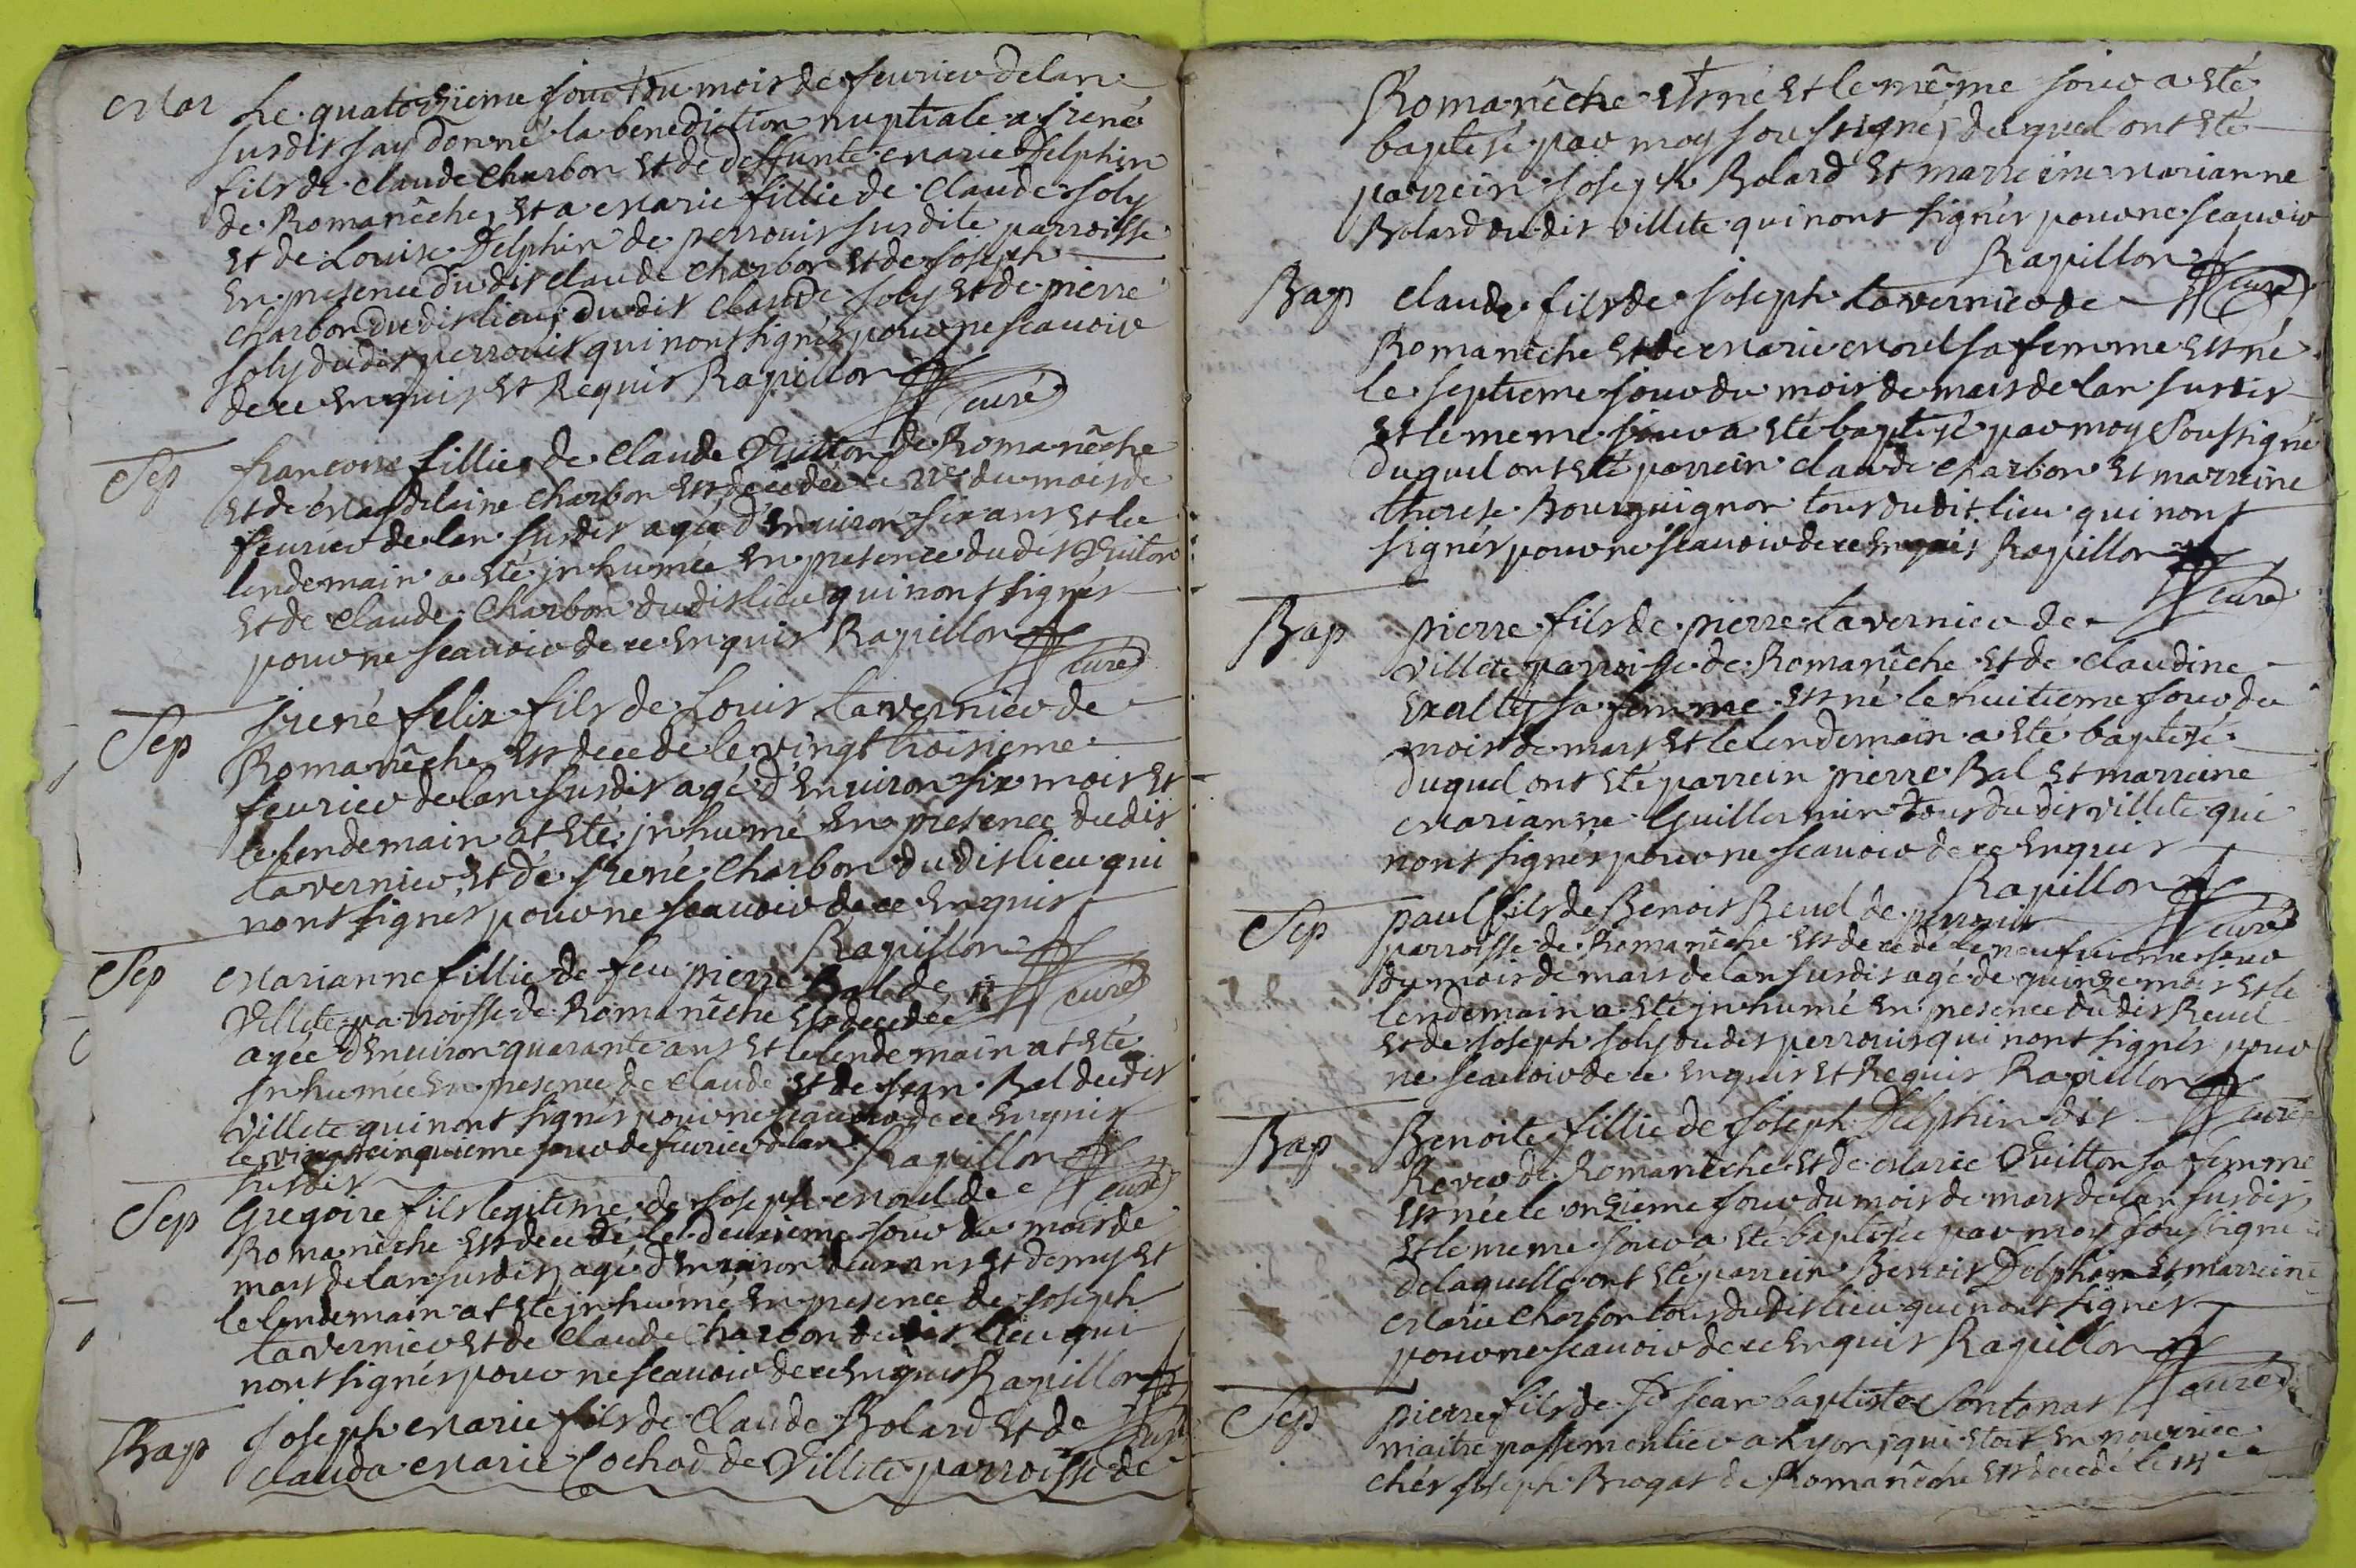 Mar Le quatorzieme jour du mois de feurier de lan
susdit jay donné la benediction nuptiale a jrené
fils de claude charbon et de deffunte marie Delphin
de Romanêche, et a marie fillie de claude joly
et de Louise Delphin de perrouis susdite parroisse
en presence dudit claude charbon et de joseph
charbon dudit lieu, dudit claude joly et de pierre
joly dudit perrouis qui nont signés pour ne scauoir
de ce enquis et Requis Rapillon
curé
Sep francoise fillie de claude Quitton de Romanêche
et de magdelaine charbon est decedée le 22e du mois de
feurier de lan susdit agée d'enuiron six ans et le
lendemain a eté jnhumée en presence dudit Quiton
et de claude charbon dudit lieu qui nont signés
pour ne scauoir de ce enquis Rapillon
curé
Sep jrené felix fils de Louis tavernier de
Romanêche est decedé le vingt troisieme
feurier de lan susdit agé d'enuiron six mois et
le lendemain at eté jnhumé en presence dudit
tavernier, et de jrené charbon dudit lieu qui
nont signés pour ne scauoir de ce enquis
Rapillon
curé
Sep Marianne fillie de feu pierre Bal de
Villete parroisse de Romanêche est decedée
agée d'enuiron quarante ans et le lendemain at eté
jnhumée en presence de claude et de jean Bal dudit
villete qui nont signés pour ne scauoir de ce enquis
le vingt cinquieme jour de feurier de lan Rapillon
susdit
curé
Sep Gregoire fils legitime de joseph morel de
Romanêche est decedé le deuxieme jour du mois de
mars de lan susdit agé d'enuiron deux ans et demy et
le lendemain at eté jnhumé en presence de joseph
tavernier et de claude charbon dudit lieu qui
nont signés pour ne scauoir de ce enquis Rapillon
curé
Bap joseph marie fils de claude Bolard et de
clauda marie Cochod de Villete parroisse de
Romanêche est né et le même jour a eté
baptisé par moy soussigné, duquel ont eté
parrein joseph Bolard et marreine marianne
Bolard dudit villete qui nont signés pour ne scauoir
Rapillon
curé
Bap claude fils de joseph tavernier de
Romanêche et de marie morel sa femme est né
le septieme jour du mois de mars de lan susdit
et le meme jour a eté baptisé par moy soussigné
duquel ont eté parrein claude charbon et marreine
therese Bourguignon tous dudit lieu qui nont
signés pour ne scauoir de ce enquis Rapillon
curé
Bap pierre fils de pierre tavernier de
villete parroisse de Romanêche et de claudine
sa femme est né le huitieme jour du
mois de mars et le lendemain a eté baptisé
duquel ont eté parrein pierre Bal et marreine
marianne Guillermin tous dudit villete qui
nont signés pour ne scauoir de ce enquis
Rapillon
curé
Sep paul fils de Benoit Reud de perrouis
parroisse de Romanêche est decedé le neufvieme jour
du mois de mars de lan susdit agé de quinze mois et le
lendemain a eté jnhumé en presence dudit Reud
et de joseph joly dudit perrouis qui nont signés pour
ne scauoir de ce enquis et Requis Rapillon
curé
Bap Benoite fillie de joseph Delphin dit
Rever de Romanêche et de marie Quitton sa femme
est née le onzieme jour du mois de mars de lan susdit
et le meme jour a eté baptisée par moy soussigné
delaquelle ont eté parrein Benoit Delphin et marreine
marie charbon tous dudit lieu qui nont signés
pour ne scauoir de ce enquis Rapillon
curé
Sep pierre fils de Sr jean baptiste Contonas
maitre passementier a Lyon, qui etoit en nourrice
chez joseph Brogat de Romanêche est decedé le